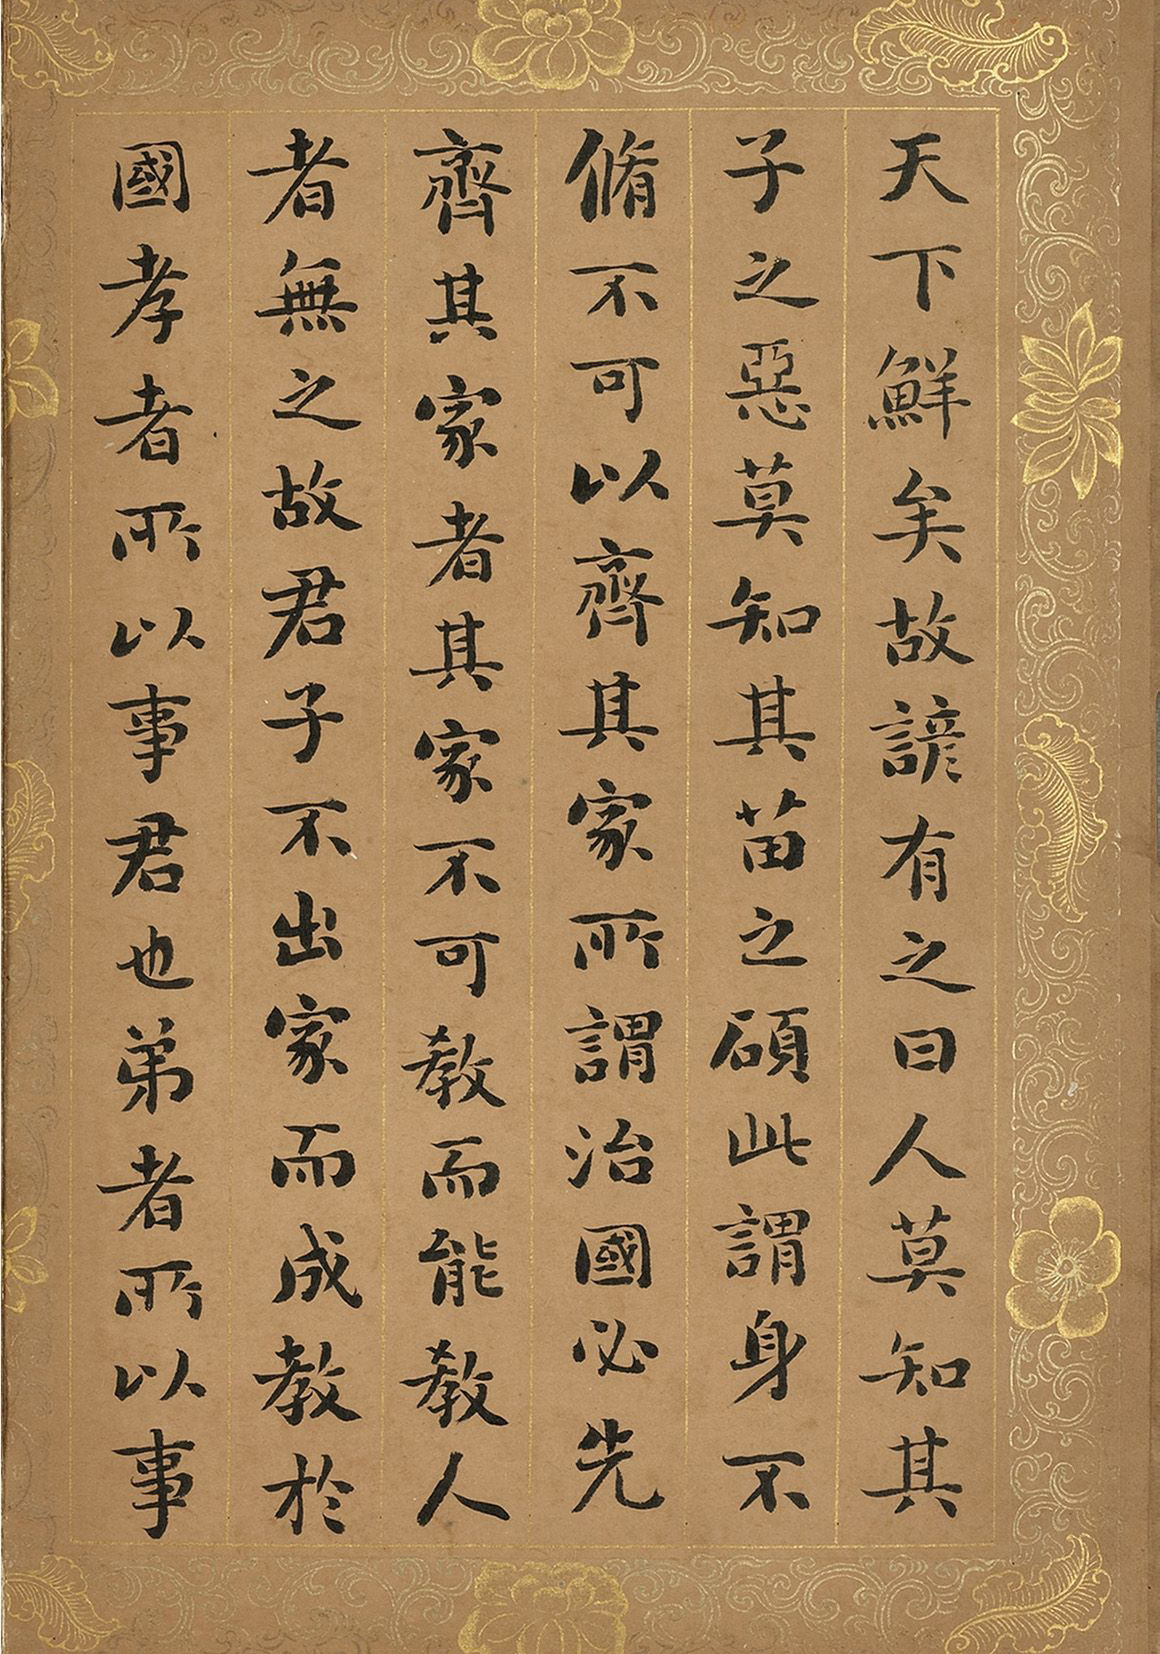 天下鮮矣故諺有之曰人莫知其
子之惡莫知其苗之碩此謂身不
脩不可以齊其家所謂治國必先
齊其家者其家不可教而能教人
者無之故君子不出家而成教於
國孝者所以事君也弟者所以事